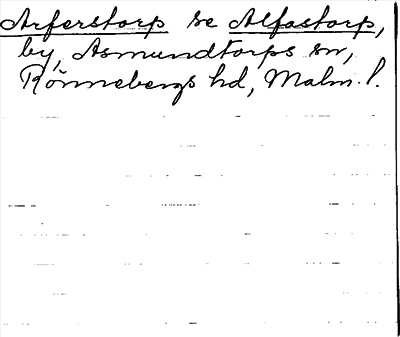 Arferstorp se Alfastorp,
by, Asmundtorps sn,
Rönnebergs hd, Malm. l.